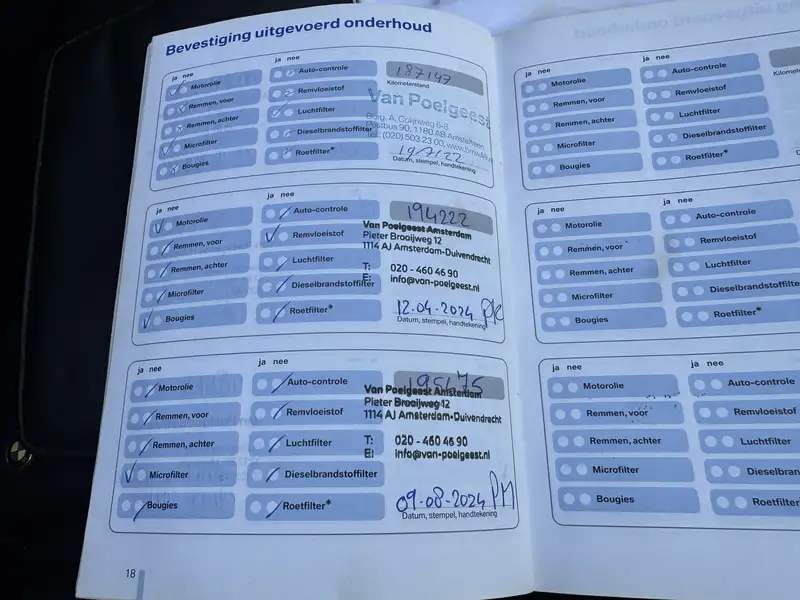 Bevestiging uitgevoerd onderhoud
ja nee
ja nee
Motorolie
Remmen, voor
Remmen, achter
Microfilter
Bougies
Auto-controle
Remvloeistof
Luchtfilter
Dieselbrandstoffilter
Roetfilter*
187147
Kilometerstand
Van Poelgeest
Burg. A. Colijnweg 6-8
Postbus 90, 1180 AB Amstelveen
Tel: (020) 503 23 00,
19/7/22
Datum, stempel, handtekening
ja nee
ja nee
Motorolie
Remmen, voor
Remmen, achter
Microfilter
Bougies
Auto-controle
Remvloeistof
Luchtfilter
Dieselbrandstoffilter
Roetfilter*
194222
Van Poelgeest Amsterdam
Pieter Braaijweg 12
1114 AJ Amsterdam-Duivendrecht
T: 020 - 460 46 90
E: info@van-poelgeest.nl
12.04-2024
Datum, stempel, handtekening
ja nee
ja nee
Motorolie
Remmen, voor
Remmen, achter
Microfilter
Bougies
Auto-controle
Remvloeistof
Luchtfilter
Dieselbrandstoffilter
Roetfilter*
195475
Van Poelgeest Amsterdam
Pieter Braaijweg 12
1114 AJ Amsterdam-Duivendrecht
T: 020 - 460 46 90
E: info@van-poelgeest.nl
09-08-2024 PM
Datum, stempel, handtekening
18
ja nee
ja nee
Motorolie
Remmen, voor
Remmen, achter
Microfilter
Bougies
Auto-controle
Remvloeistof
Luchtfilter
Dieselbrandstoffilter
Roetfilter*
ja nee
ja nee
Motorolie
Remmen, voor
Remmen, achter
Microfilter
Bougies
Auto-controle
Remvloeistof
Luchtfilter
Dieselbrandstoffilte
Roetfilter*
ja nee
ja nee
Motorolie
Remmen, voor
Remmen, achter
Microfilter
Bougies
Auto-controle
Remvloeistof
Luchtfilter
Dieselbran
Roetfilter